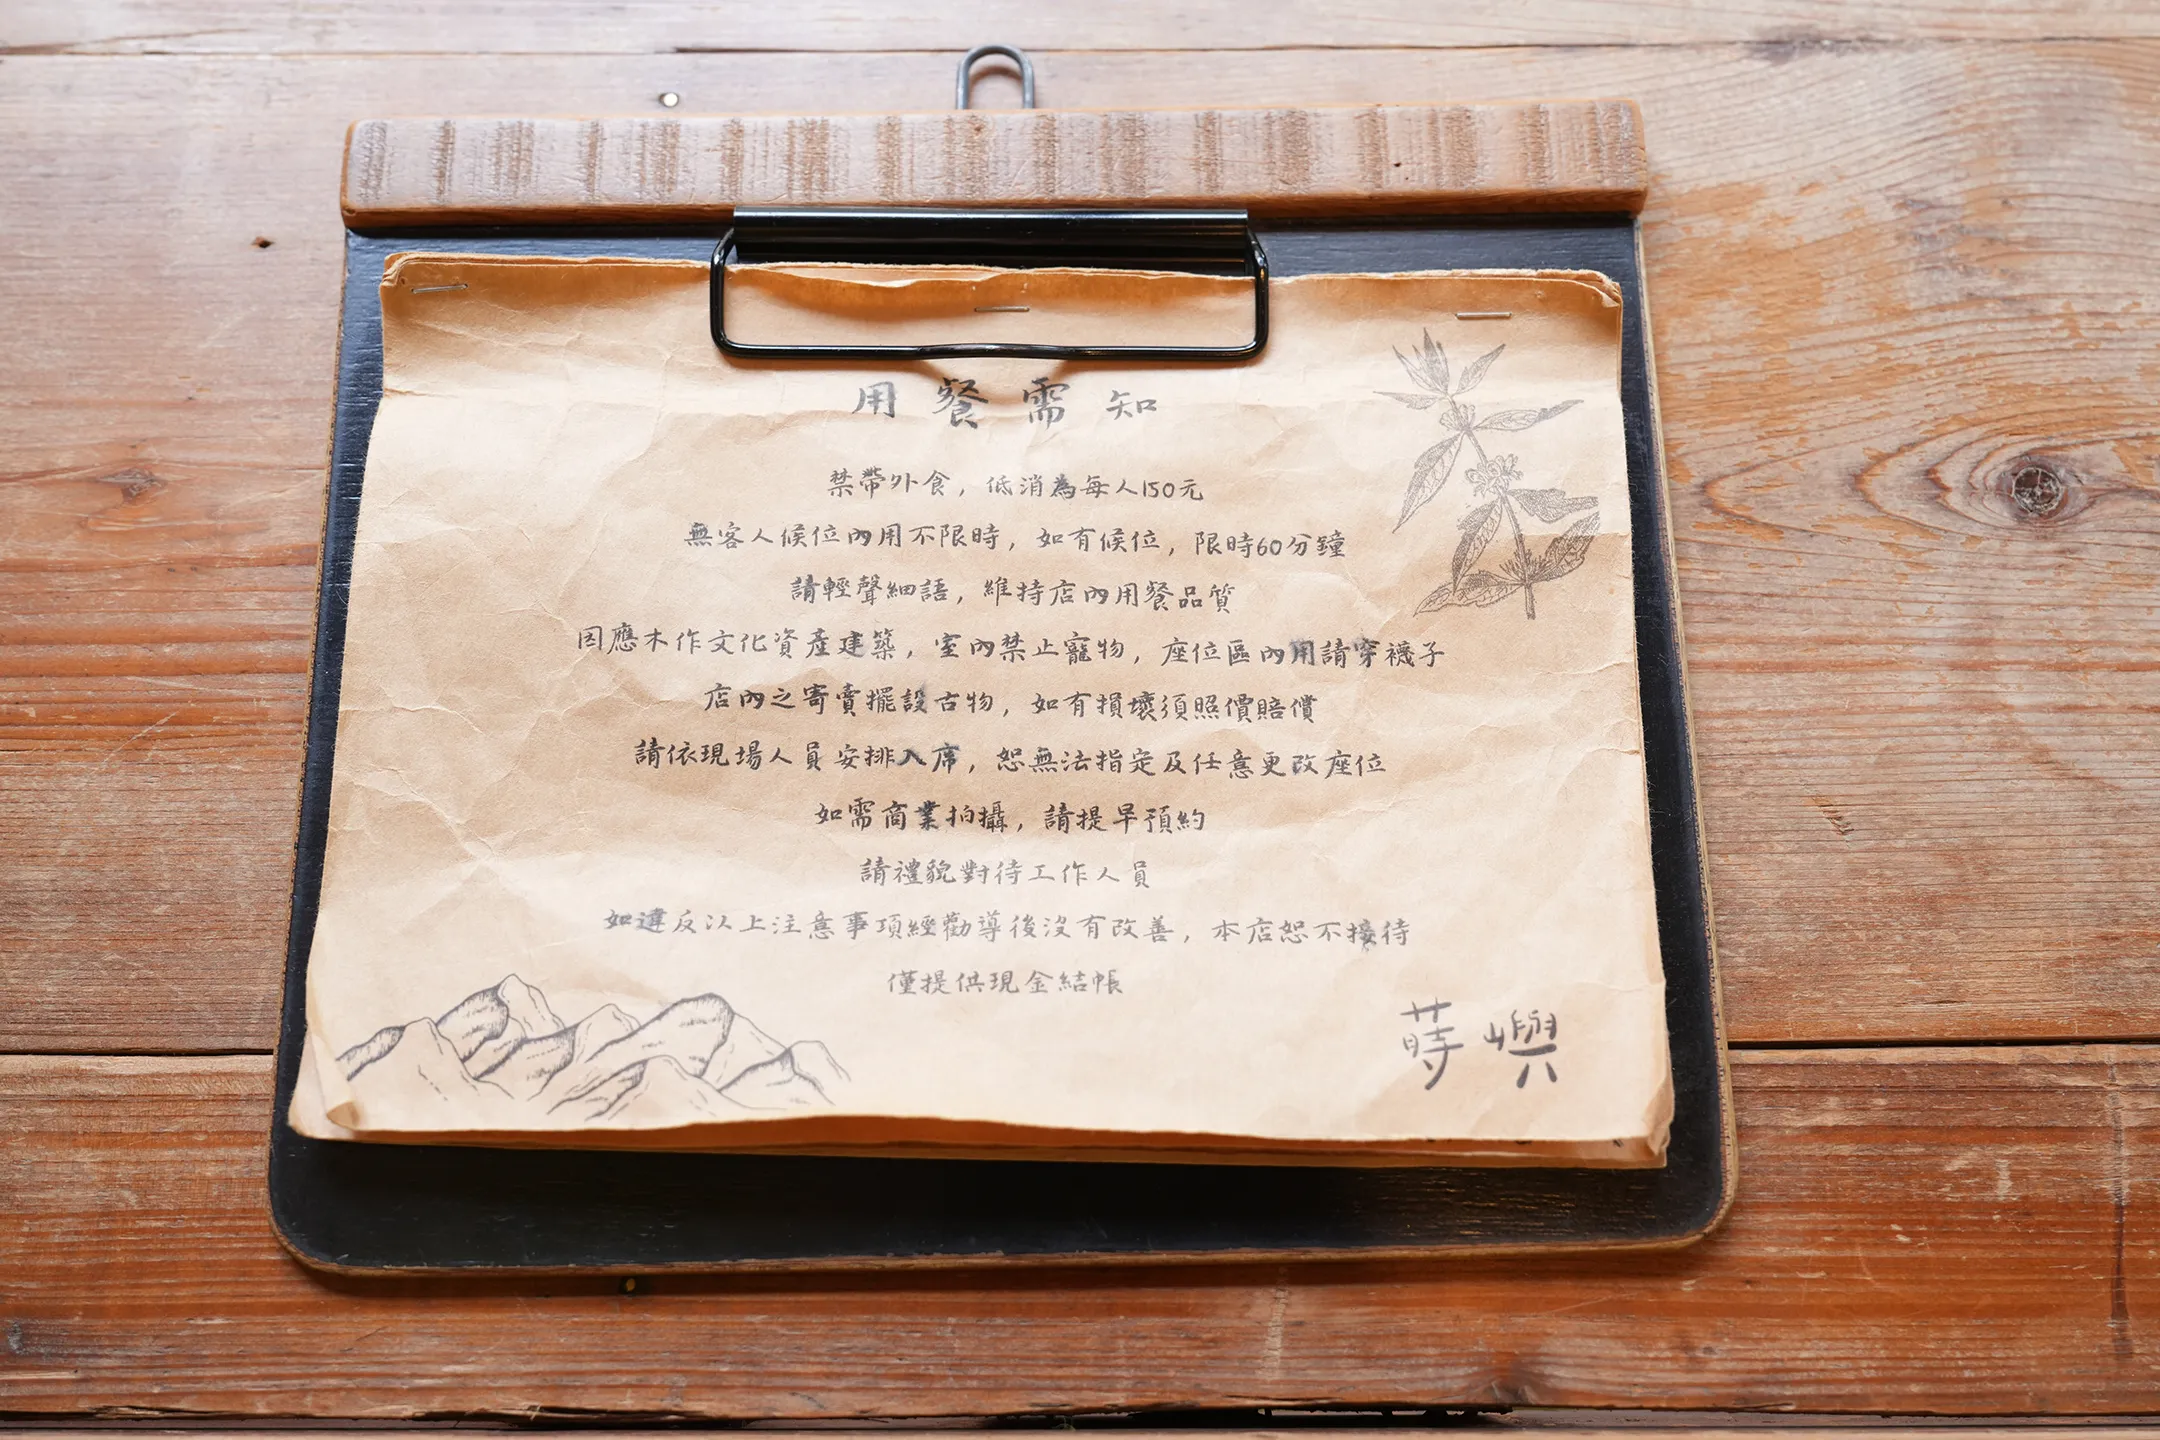 用餐需知
禁帶外食，低消為每人150元
無客人候位內用不限時，如有候位，限時60分鐘
請輕聲細語，維持店內用餐品質
因應木作文化資產建築，室內禁止寵物，座位區內用請穿襪子
店內之寄賣擺設古物，如有損壞須照價賠償
請依現場人員安排入席，恕無法指定及任意更改座位
如需商業拍攝，請提早預約
請禮貌對待工作人員
如違反以上注意事項經勸導後沒有改善，本店恕不接待
僅提供現金結帳
蒔嶼